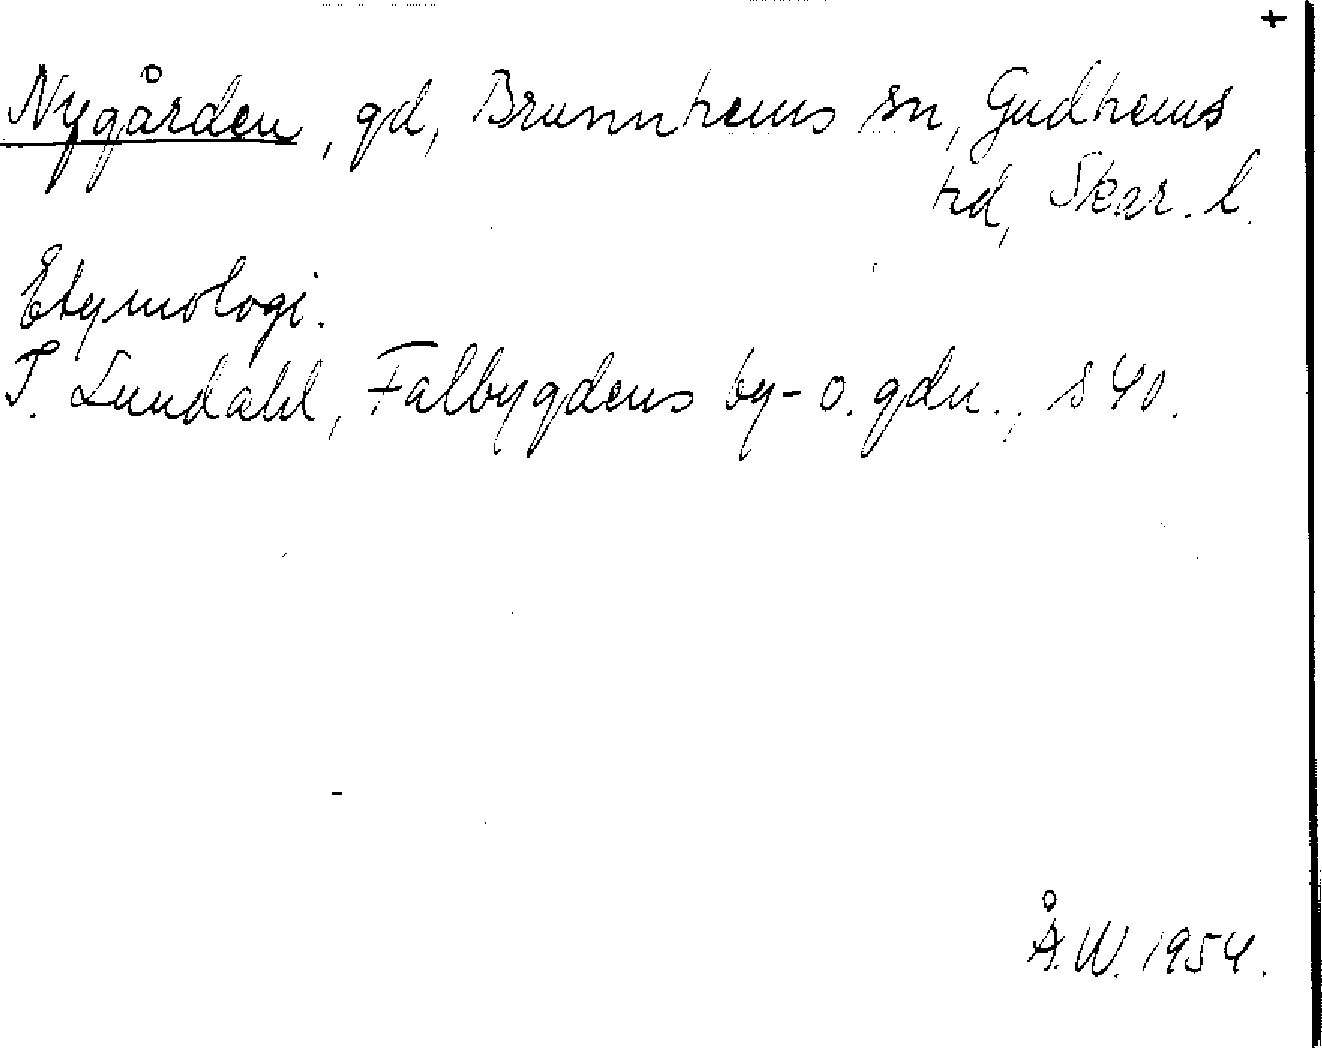 +
Nygården, gd, Brunnhems sn, Gudhems
hd, Skar. l.
Etymologi.
I. Lundahl, Falbygdens by- o. gdn., s 40.
Å.W. 1954.